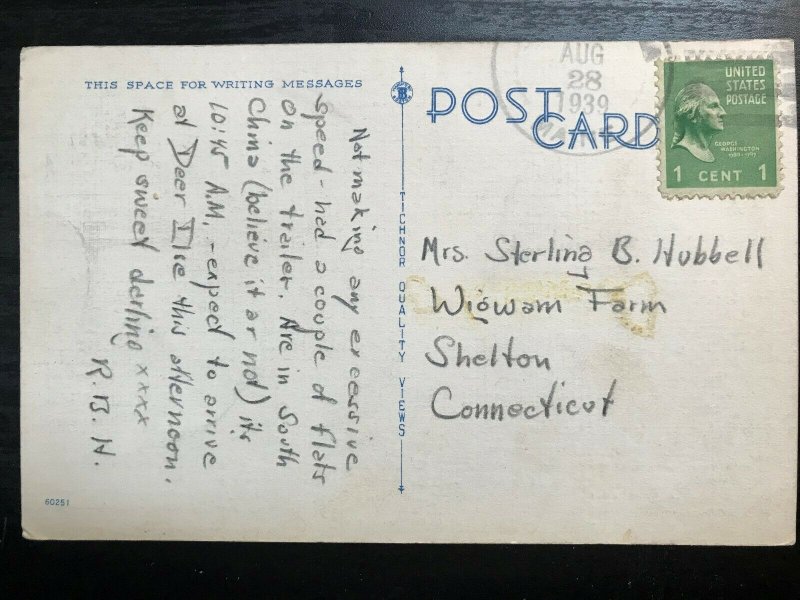 THIS SPACE FOR WRITING MESSAGES
Not making any excessive
speed - had a couple of flats
on the trailer. Are in South
China (believe it or not) it's
10:45 A.M, - expect to arrive
at Deer Isle this afternoon.
Keep sweet darling xxxx
R. B. H.
60251
TICHNOR QUALITY VIEWS
POST CARD
AUG
28
1939
UNITED
STATES
POSTAGE
GEORGE
WASHINGTON
1789-1797
1 CENT 1
Mrs. Sterling B. Hubbell
Wigwam Farm
Shelton
Connecticut